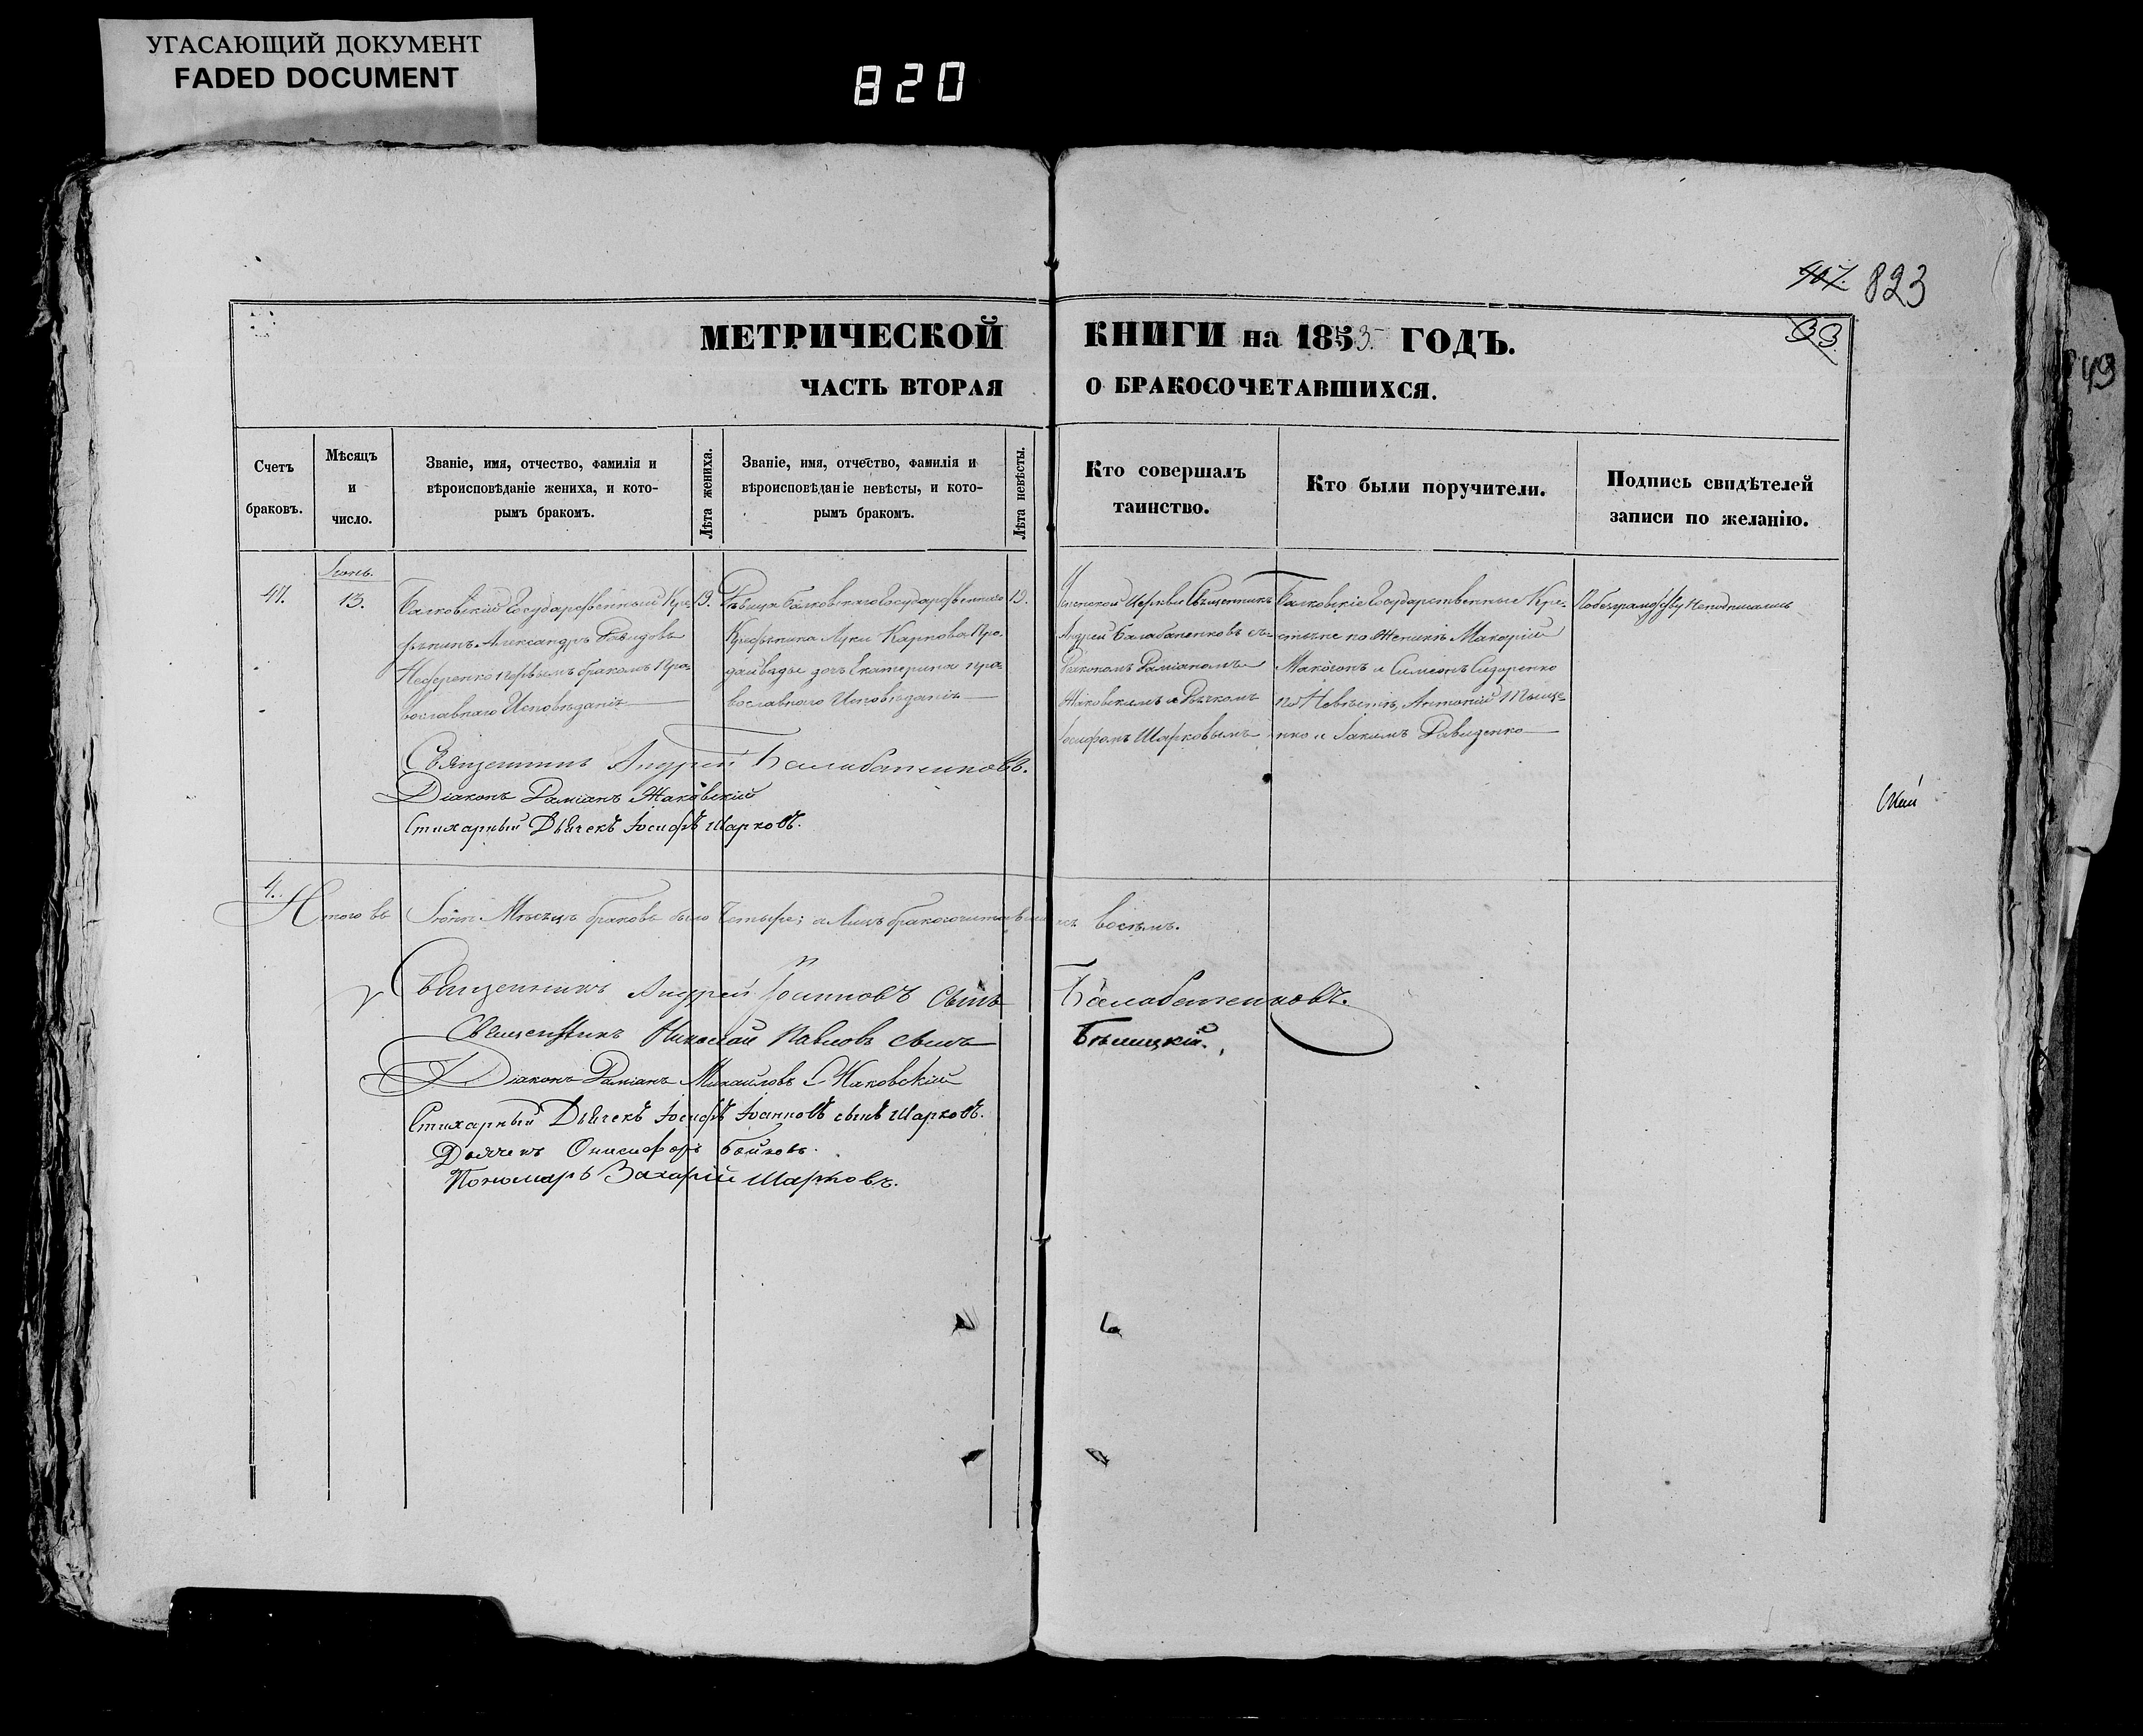 УГАСАЮЩИЙ ДОКУМЕНТ
FADED DOCUMENT
820
407. 823
33.
49
МЕТРИЧЕСКОЙ КНИГИ на 1853 ГОДЪ.
ЧАСТЬ ВТОРАЯ О БРАКОСОЧЕТАВШИХСЯ.
Счетъ
браковъ.
Мѣсяцъ
и
число.
Званіе, имя, отчество, фамилія и
вѣроисповѣданіе жениха, и кото-
рымъ бракомъ.
Лѣта жениха.
Званіе, имя, отчество, фамилія и
вѣроисповѣданіе невѣсты, и кото-
рымъ бракомъ.
Лѣта невѣсты.
Кто совершалъ
таинство.
Кто были поручители.
Подпись свидѣтелей
записи по желанію.
Іюнь.
13.
Балковскій Государственный Кре-
стьянинъ Александръ Давидовъ
первымъ бракомъ Пра-
вославнаго Исповѣданія
19.
Дѣвица Балковскаго Государственнаго
Крестьянина Луки Карпова Про-
дайвады дочь Екатерина пра-
вославнаго Исповѣданія
19.
Успенской Церкви Священникъ
Андрей Балабаненковъ съ
Діакономъ Даміаномъ
Жаковскимъ и Дьячкомъ
Іосифомъ Шарковымъ
Балковскіе Государственные Кре-
стьяне по Женихѣ Макарій
Макогонъ и Симеонъ Сидоренко
по Невѣстѣ, Антоній Тыще-
нко и Іакимъ Давиденко
По безграмотству Неподписались
Священникъ Андрей Балабаненковъ.
Діаконъ Даміанъ Жаковскій
Стихарный Дьячекъ Іосифъ Шарковъ.
4.
Итого въ Іюнѣ Мѣсяцѣ браковъ было Четыре; а Лицъ бракосочитавшихся восемь.
Священникъ Андрей Іоанновъ сынъ Балабаненковъ.
Священникъ Николай Павловъ сынъ Бѣлицкій.
Діаконъ Даміанъ Михайловъ Жаковскій
Стихарный Дьячекъ Іосифъ Іоанновъ сынъ Шарковъ.
Дьячекъ Онисифоръ Бойковъ.
Пономарь Захарій Шарковъ.